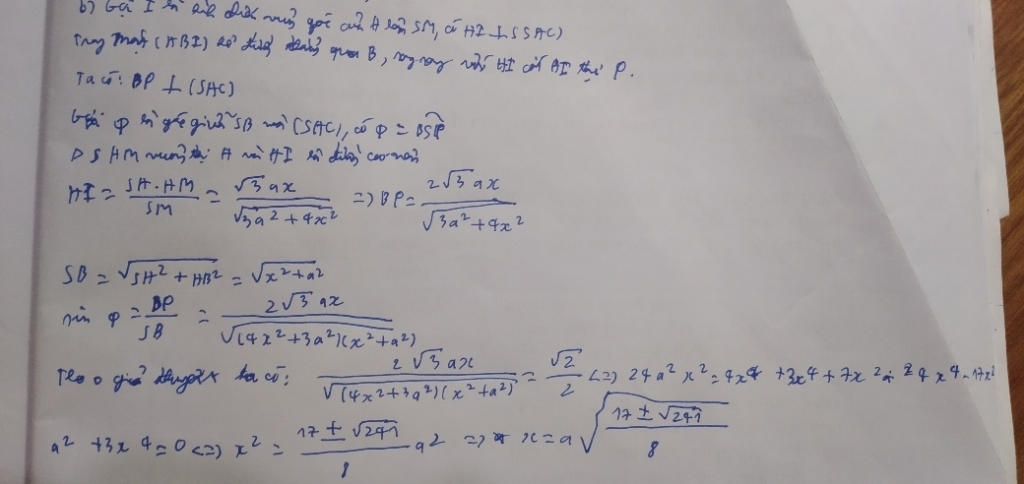 b) Gọi I là hình chiếu vuông góc của H lên SM, có HI ⊥ (SAC)
Trong mặt (HBI) kẻ đường thẳng qua B, song song với HI cắt AI tại P.
Ta có: BP ⊥ (SAC)
Gọi φ là góc giữa SB và (SAC), có φ = BSP
Δ SHM vuông tại H và HI là đường cao nên
HI = SH.HM / SM = √3 ax / √(3a² + 4x²) => BP = 2√3 ax / √(3a² + 4x²)
SB = √(SH² + HB²) = √(x² + a²)
sin φ = BP / SB = 2√3 ax / √((4x² + 3a²)(x² + a²))
Theo giả thuyết ta có: 2√3 ax / √((4x² + 3a²)(x² + a²)) = √2 / 2 <=> 24a²x² = 4x⁴ + 3x⁴ + 7x² 4x⁴ - 17x²
a² + 3x⁴ = 0 <=> x² = (17 ± √241) / 8 a² => x = a √((17 ± √241) / 8)